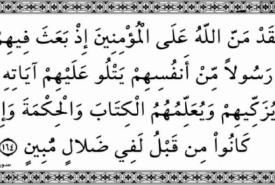 قَدْ مَنَّ اللَّهُ عَلَى الْمُؤْمِنِينَ إِذْ بَعَثَ فِيهِمْ
رَسُولاً مِّنْ أَنفُسِهِمْ يَتْلُو عَلَيْهِمْ آيَاتِهِ
يُزَكِّيهِمْ وَيُعَلِّمُهُمُ الْكِتَابَ وَالْحِكْمَةَ وَإِ
كَانُواْ مِن قَبْلُ لَفِي ضَلالٍ مُّبِينٍ ١٦٤